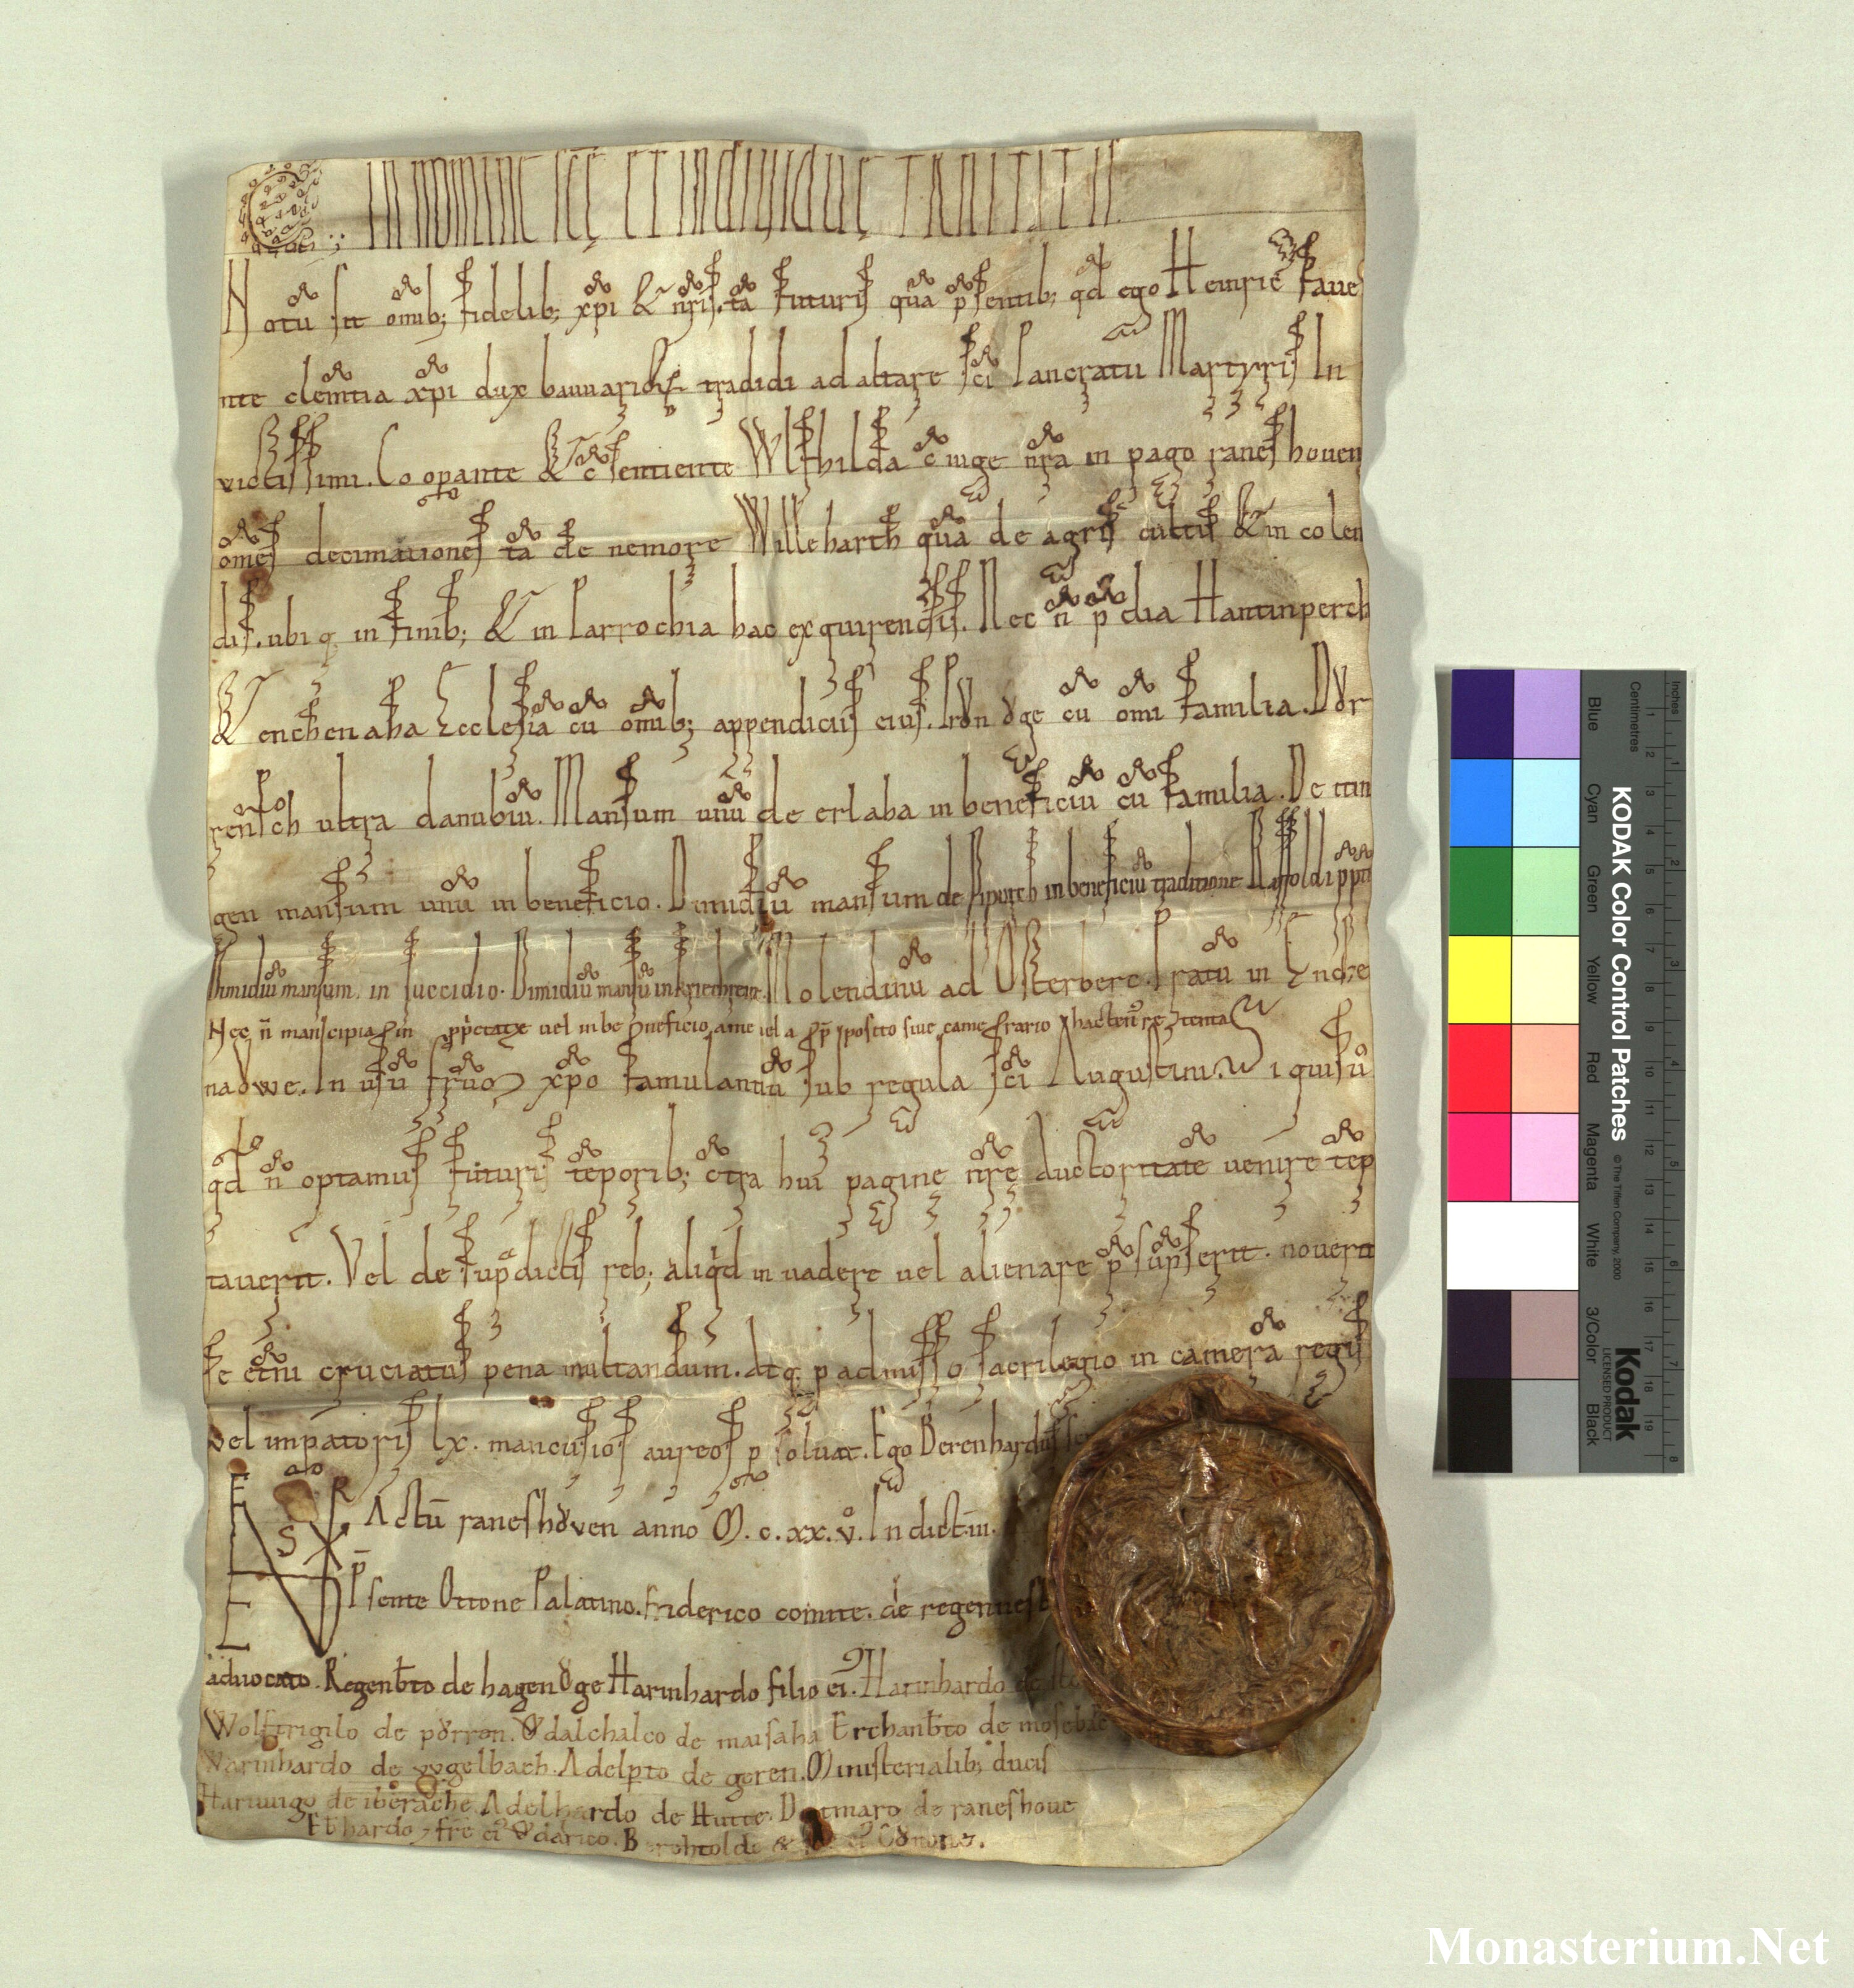 IN NOMINE SCE ET INDIVIDUE TRINITATIS
Notu sit omib; fidelib; xpi & nris. ta futuris qua psentib; qd ego Heinric faue
nte clemtia xpi dux bauuarior tradidi ad altare sci Pancratii Martyris In
victissimi. Co opante & csentiente Wlfhilda c iuge nra in pago raneshouen
omes decimationes ta de nemore Willeharth qua de agris cultis & in colen
dis. ubi q; in finib; & in Parrochia hac exquirendis. Nec n p dia Hantinperch
& enchenaha Ecclesia cu omib; appendiciis eius. Prvn oge cu omi familia. Dvr
rensch ultra danubiu. Mansum unu de erlaba in beneficiu cu familia. De tin
gen mansum unu in beneficio. Dimidiu mansum de in beneficiu traditione
Dimidiu mansum in succidio. Dimidiu mansu in Molendinu ad Osterberc. Pratu in Ench e
Nec n mancipia in pprietate uel in be neficio ame uel a p posito siue came rario hacten retenta
na we. In usu fruo xpo famulantiu sub regula sci Augustini. Si quis u
qd n optamus futuris teporib; ctra hui pagine nre auctoritate uenire tep
tauerit. Vel de supdictis reb; aliqd in uadere uel alienare p supserit. nouerit
se etni cruciatus pena multandum. atq; p admisso sacrilegio in camera regis
vel impatoris lx. mancusios aureos p soluat. Ego Berenhardus
Actu raneshoven anno M. c. xx. v. Indict. iii.
Psente Ottone Palatino. Friderico comite. de regennesb
aduocato. Regenbto de hagenoge Harinhardo filio ei. Harinhardo de
Wolftrigilo de pvrron. Odalchalco de maisaha Erchanbto de mosebac
Warinhardo de vvgelbach. Adelpto de geren. Ministerialib; ducis
Hartuuigo de iberache. Adelhardo de Hutte. D tmaro de raneshoue
Ebhardo, fre ei Odarico. Berchtoldo &
Blue
Cyan
Green
Yellow
Red
Magenta
White
3/Color
Black
Inches
Centimetres
KODAK Color Control Patches
© The Tiffen Company, 2000
Kodak
LICENSED PRODUCT
Monasterium.Net